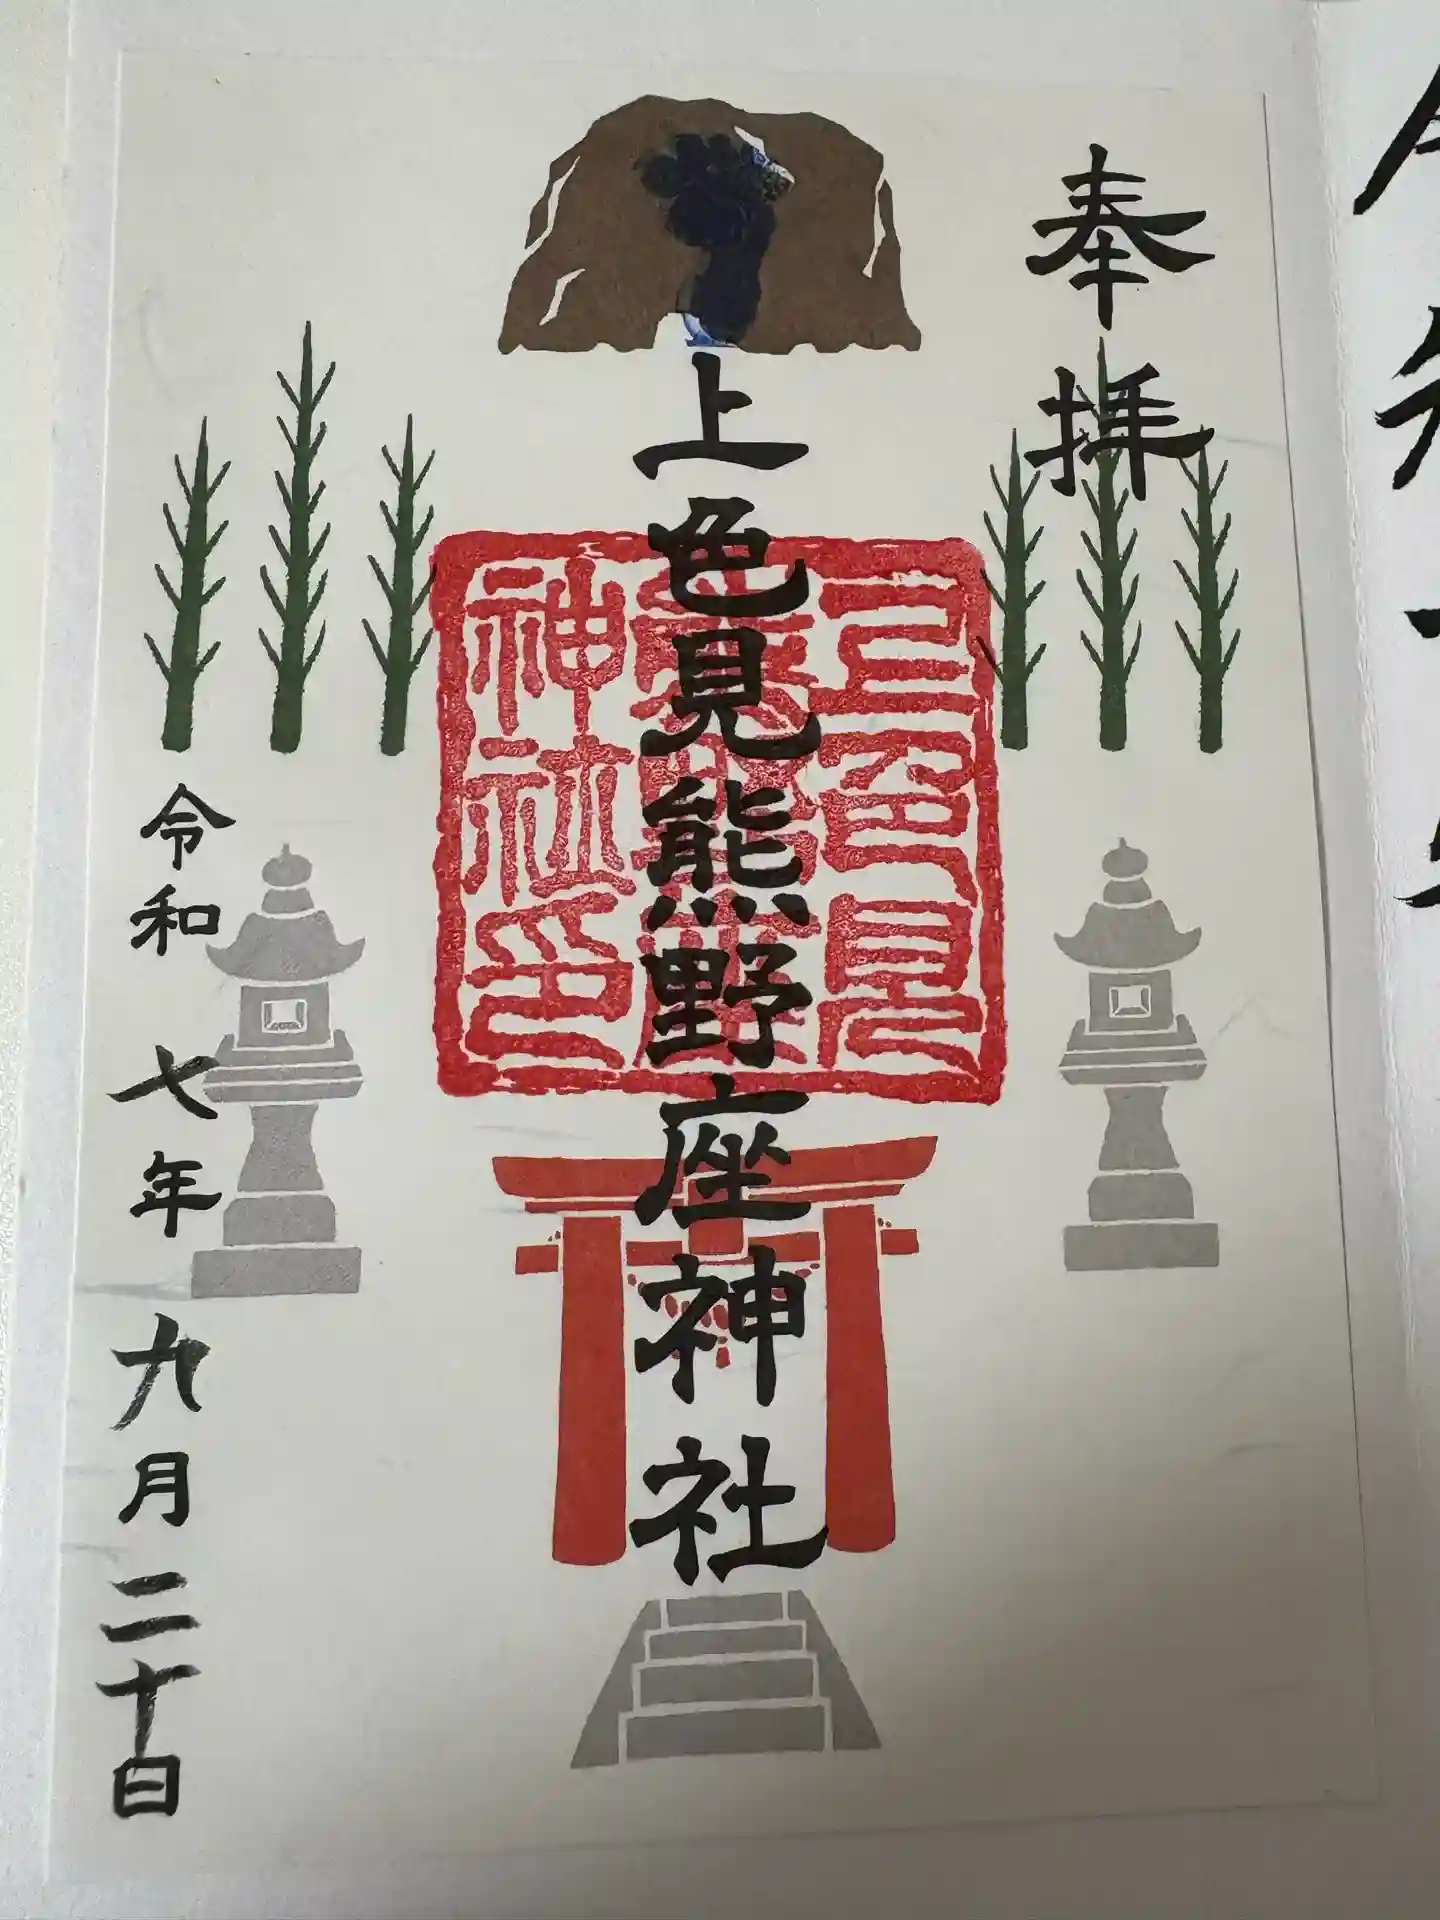 奉拝
上色見熊野座神社
上色見
熊野座
神社印
令和七年九月二十日